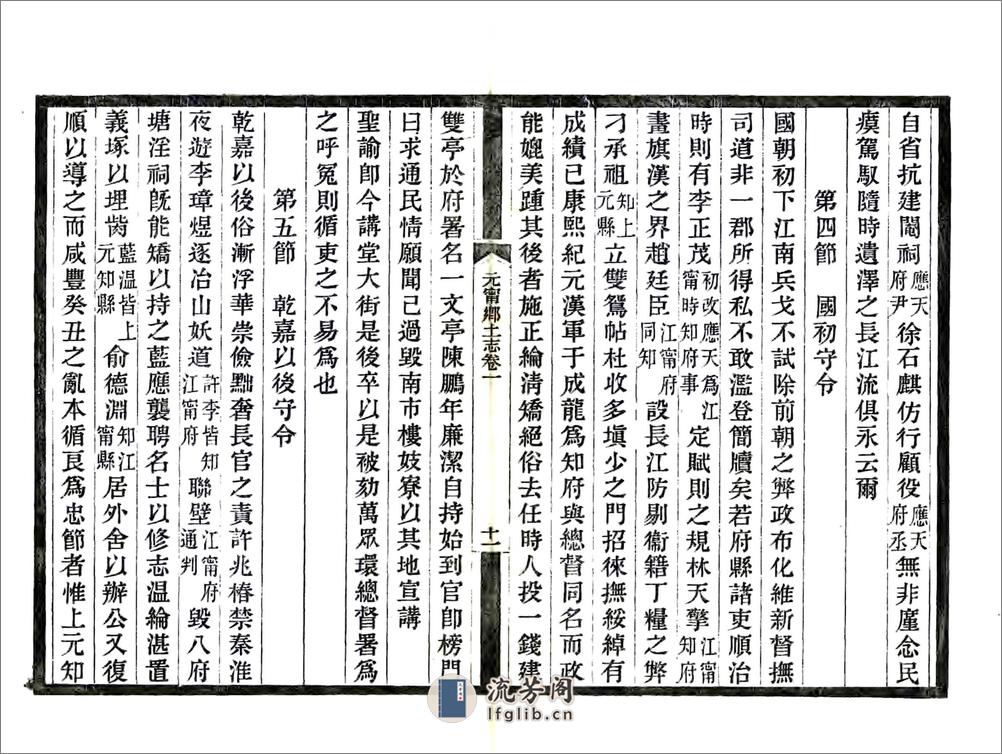 自省抗建閹祠應天府尹徐石麒仿行顧役應天府丞無非廑念民
瘼駕馭隨時遺澤之長江流俱永云爾
第四節　國初守令
國朝初下江南兵戈不試除前朝之弊政布化維新督撫
司道非一郡所得私不敢濫登簡牘矣若府縣諸吏順治
時則有李正茂初改應天爲江甯時知府事定賦則之規林天擎江甯知府
畫旗漢之界趙廷臣江甯府同知設長江防剔衞籍丁糧之弊
刁承祖知上元縣立雙鴛帖杜收多塡少之門招徠撫綏綽有
成績已康熙紀元漢軍于成龍爲知府與總督同名而政
能媲美踵其後者施正綸淸矯絕俗去任時人投一錢建
元甯鄉土志卷一
十一
雙亭於府署名一文亭陳鵬年廉潔自持始到官卽榜門
曰求通民情願聞已過毀南市樓妓寮以其地宣講
聖諭卽今講堂大街是後卒以是被劾萬眾環總督署爲
之呼冤則循吏之不易爲也
第五節　乾嘉以後守令
乾嘉以後俗漸浮華崇儉黜奢長官之責許兆椿禁秦淮
夜遊李璋煜逐冶山妖道許李皆知江甯府聯壁江甯府通判毀八府
塘淫祠旣能矯以持之藍應襲聘名士以修志温綸湛置
義塚以埋胔藍温皆上元知縣俞德淵知江甯縣居外舍以辦公又復
順以導之而咸豐癸丑之亂本循良爲忠節者惟上元知
流芳阁
lfglib.cn